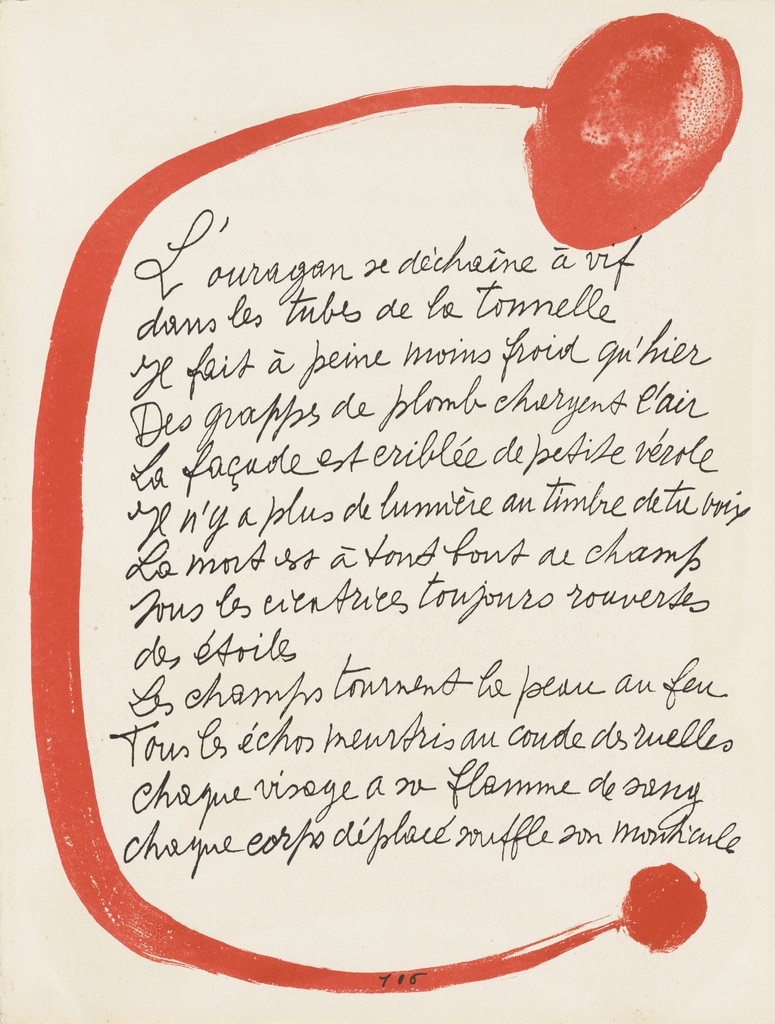 L'ouragan se déchaîne à vif
dans les tubes de la tonnelle
Il fait à peine moins froid qu'hier
Des grappes de plomb chargent l'air
La façade est criblée de petite vérole
Il n'y a plus de lumière au timbre de ta voix
La mort est à tout bout de champ
Tous les cicatrices toujours rouvertes
des étoiles
Les champs tournent la peau au feu
Tous les échos meurtris au coude des ruelles
chaque visage a sa flamme de sang
chaque corps déplacé souffle son monticule
106